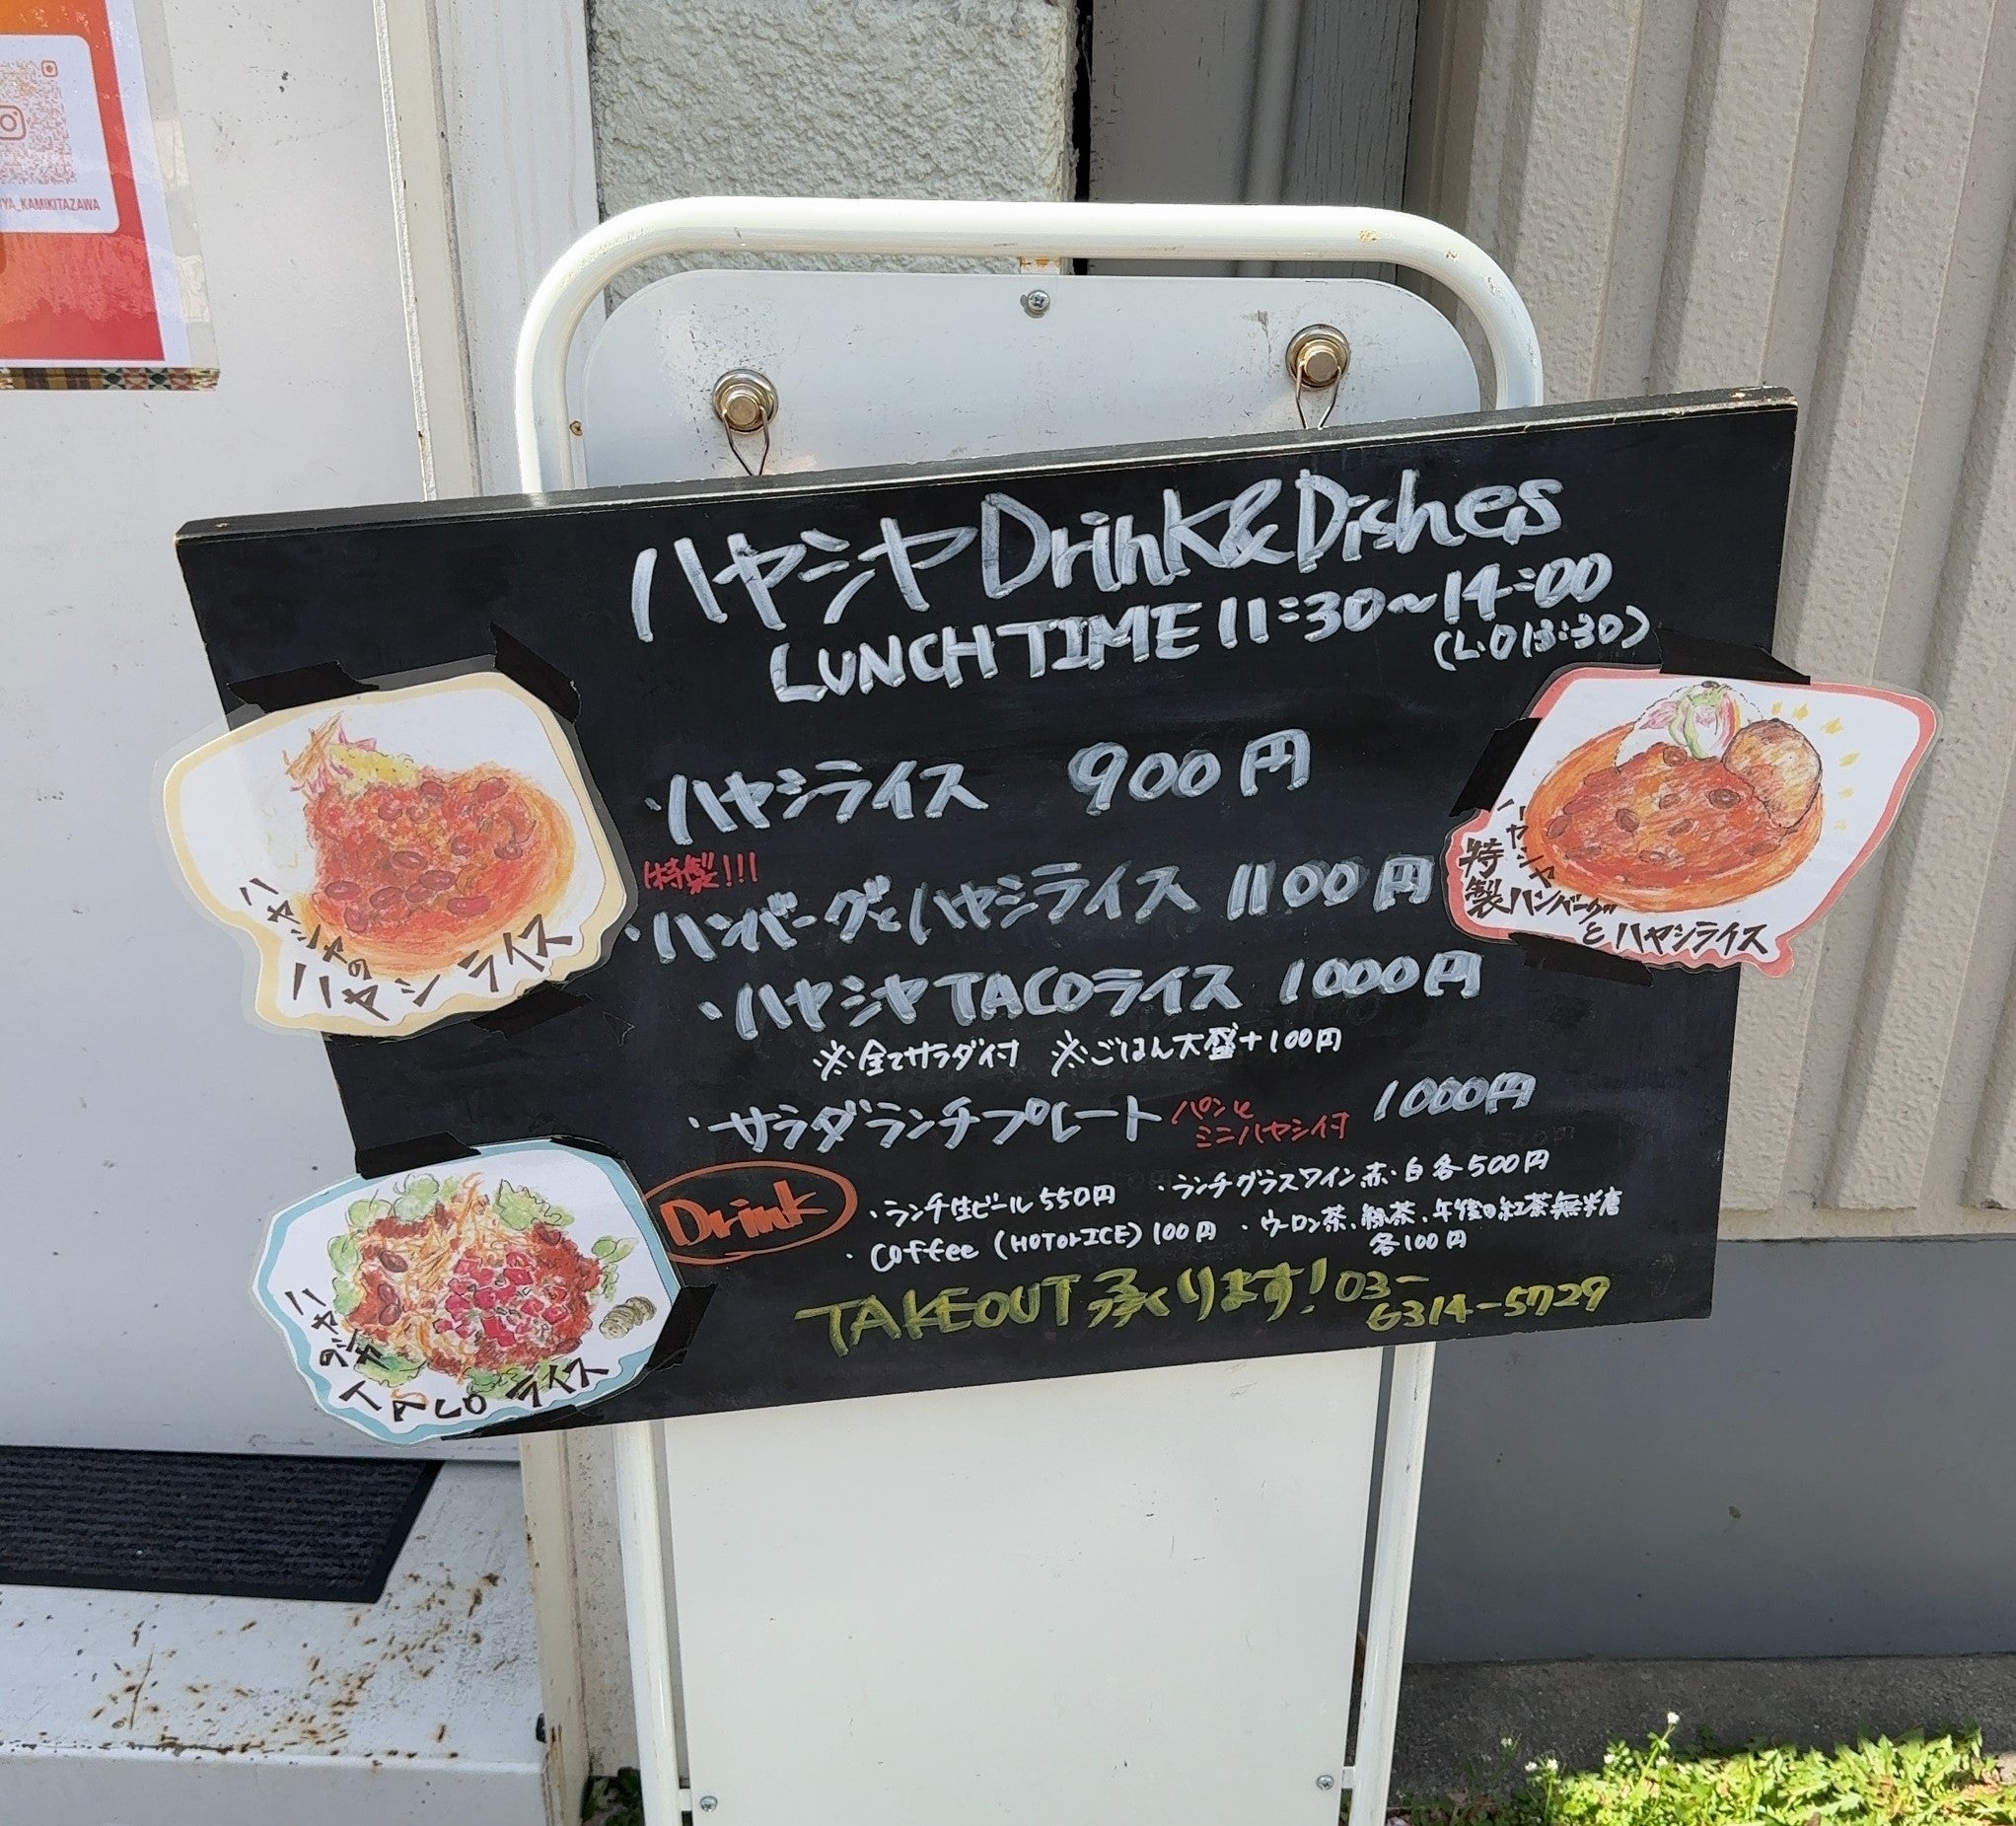 YA_KAMIKITAZAWA
ハヤシヤ Drink&Dishes
LUNCH TIME 11:30～14:00
(L.O 13:30)
・ハヤシライス 900円
特製!!!
・ハンバーグとハヤシライス 1100円
・ハヤシヤTACOライス 1000円
※全てサラダ付 ※ごはん大盛+100円
・サラダランチプレート パンと ミニハヤシ付 1000円
Drink
・ランチ生ビール 550円 ・ランチグラスワイン赤・白 各500円
・Coffee (HOT or ICE) 100円 ・ウーロン茶、緑茶、午後の紅茶無糖
各100円
TAKEOUT 承ります! 03-
6314-5729
ハヤシヤの
ハヤシライス
ハヤシヤ
特製ハンバーグ
とハヤシライス
ハヤシヤの
TACOライス